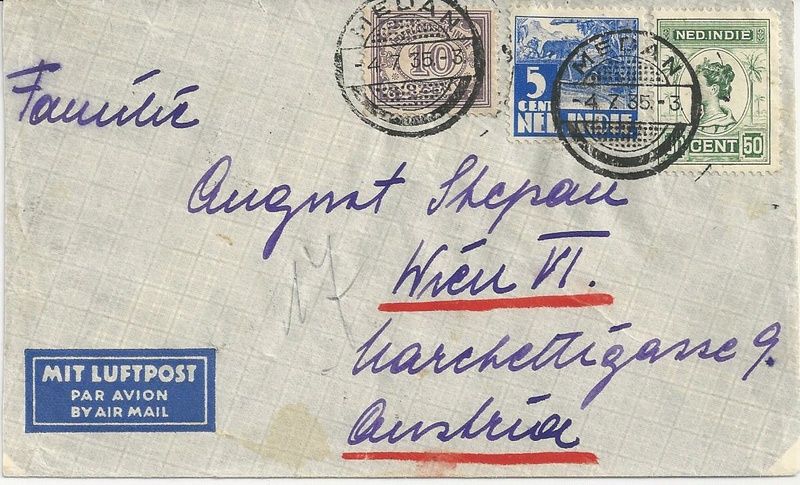 MEDAN
-4.7.35.-3
10
5
CENT
NED. INDIE
MEDAN
-4.7.35.-3
NED. INDIE
CENT 50
Familie
August Stepan
Wien VI.
Marchettigasse 9.
Austria
17
MIT LUFTPOST
PAR AVION
BY AIR MAIL